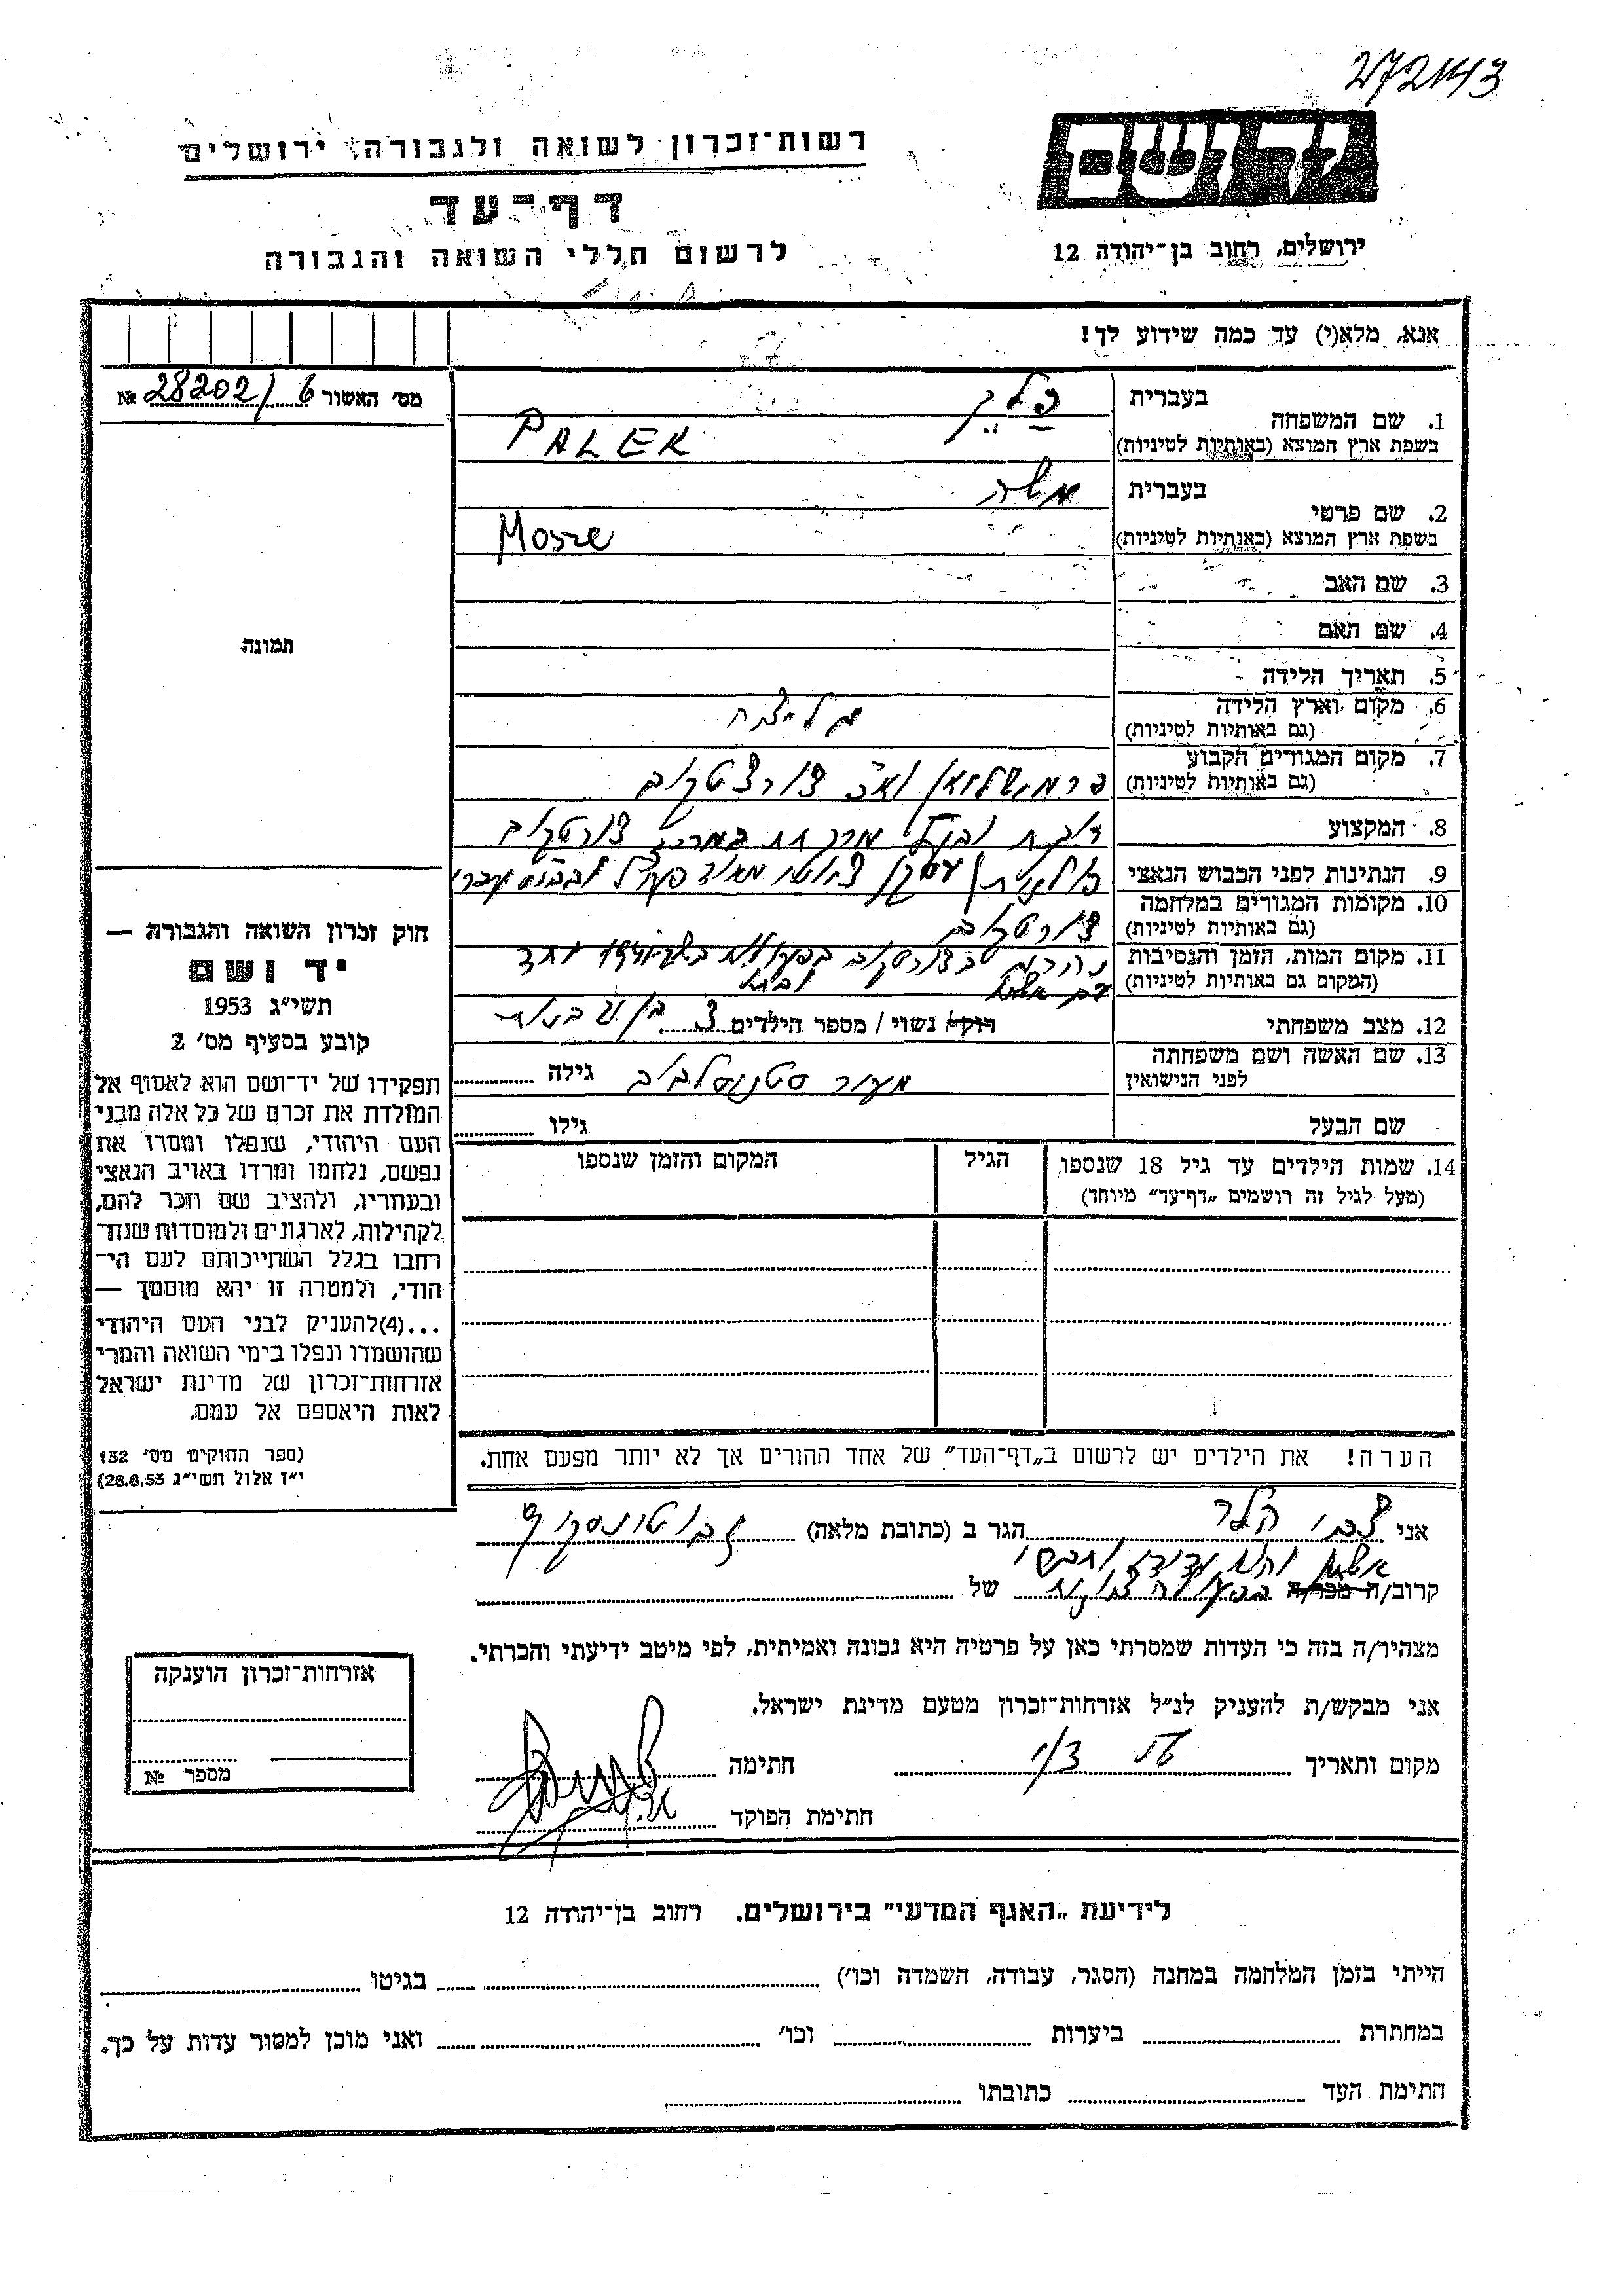 272143
יד ושם
רשות־זכרון לשואה ולגבורה, ירושלים
דף־עד
לרשום חללי השואה והגבורה
ירושלים, רחוב בן־יהודה 12
אנא, מלא(י) עד כמה שידוע לך!
מס' האשור 6 /28202 №
תמונה
1. שם המשפחה
בעברית פלק
בשפת ארץ המוצא (באותיות לטיניות) PALEK
2. שם פרטי
בעברית משה
בשפת ארץ המוצא (באותיות לטיניות) Mosze
3. שם האב
4. שם האם
5. תאריך הלידה
6. מקום וארץ הלידה
(גם באותיות לטיניות)
7. מקום המגורים הקבוע
(גם באותיות לטיניות) פרמישלאן
8. המקצוע
9. הנתינות לפני הכבוש הנאצי
10. מקומות המגורים במלחמה
(גם באותיות לטיניות) צורטקוב
11. מקום המות, הזמן והנסיבות
(המקום גם באותיות לטיניות)
עם אשתו
12. מצב משפחתי רוק/ה נשוי / מספר הילדים 3
13. שם האשה ושם משפחתה
לפני הנישואין גילה
שם הבעל גילו
14. שמות הילדים עד גיל 18 שנספו הגיל המקום והזמן שנספו
(מעל לגיל זה רושמים „דף־עד" מיוחד)
חוק זכרון השואה והגבורה —
יד ושם
תשי"ג 1953
קובע בסעיף מס' 2
תפקידו של יד־ושם הוא לאסוף אל
המולדת את זכרם של כל אלה מבני
העם היהודי, שנפלו ומסרו את
נפשם, נלחמו ומרדו באויב הנאצי
ובעוזריו, ולהציב שם וזכר להם,
לקהילות, לארגונים ולמוסדות שנח־
רבו בגלל השתייכותם לעם הי־
הודי, ולמטרה זו יהא מוסמך —
...(4)להעניק לבני העם היהודי
שהושמדו ונפלו בימי השואה והמרי
אזרחות־זכרון של מדינת ישראל
לאות היאספם אל עמם.
(ספר החוקים מס' 132
י"ז אלול תשי"ג 28.8.53)
הערה! את הילדים יש לרשום ב„דף־העד" של אחד ההורים אך לא יותר מפעם אחת.
אני צבי הלר הגר ב (כתובת מלאה)
קרוב/ה מכר/ה של
מצהיר/ה בזה כי העדות שמסרתי כאן על פרטיה היא נכונה ואמיתית, לפי מיטב ידיעתי והכרתי.
אני מבקש/ת להעניק לנ"ל אזרחות־זכרון מטעם מדינת ישראל.
מקום ותאריך חתימה
חתימת הפוקד
אזרחות־זכרון הוענקה
מספר №
לידיעת „האגף המדעי" בירושלים. רחוב בן־יהודה 12
הייתי בזמן המלחמה במחנה (הסגר, עבודה, השמדה וכו') בגיטו
במחתרת ביערות וכו' ואני מוכן למסור עדות על כך.
חתימת העד כתובתו